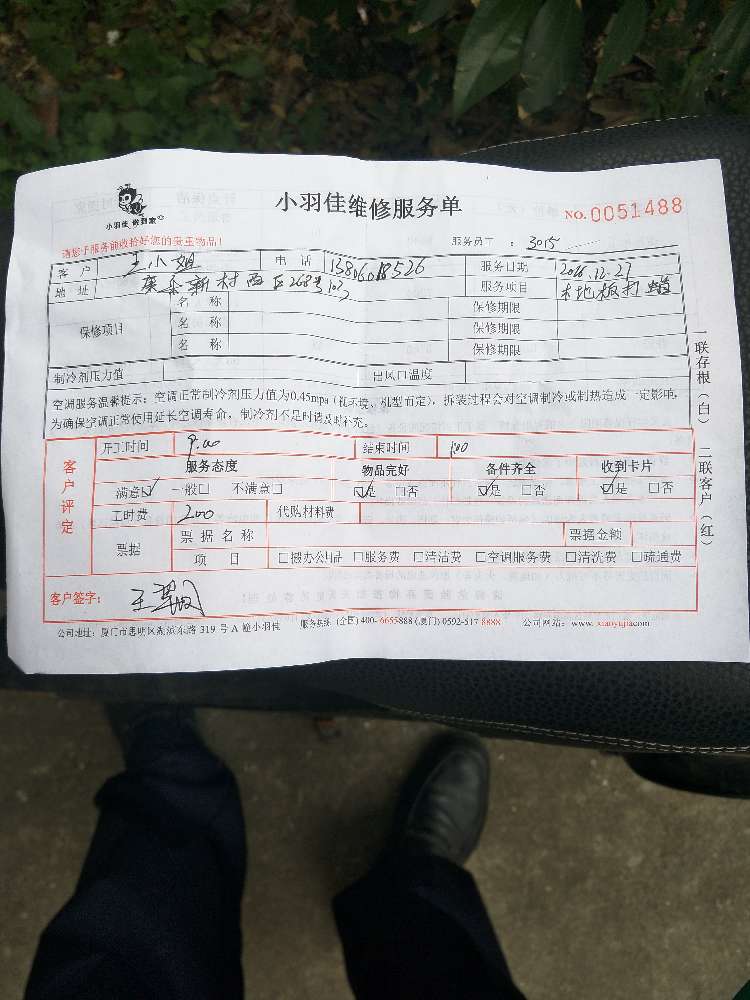 小羽佳 做到家
小羽佳维修服务单
NO.0051488
请您于服务前收拾好您的贵重物品!
服务员工 : 3015
客 户 王小姐 电 话 13806018526 服务日期 2016.12.27
地 址 新村西区268号103 服务项目 木地板打蜡
保修项目
名 称 保修期限
名 称 保修期限
名 称 保修期限
制冷剂压力值 出风口温度
空调服务温馨提示：空调正常制冷剂压力值为0.45mpa（视环境、机型而定），拆装过程会对空调制冷或制热造成一定影响，
为确保空调正常使用延长空调寿命，制冷剂不足时请及时补充。
一联存根（白） 二联客户（红）
客户评定
开工时间 9.00 结束时间
服务态度 物品完好 备件齐全 收到卡片
满意☑ 一般□ 不满意□ ☑是 □否 ☑是 □否 ☑是 □否
工时费 200 代购材料费
票据 票据名称 票据金额
项 目 □搬办公用品 □服务费 □清洁费 □空调服务费 □清洗费 □疏通费
客户签字：王
公司地址：厦门市思明区湖滨东路 319 号 A 幢小羽佳 服务热线:(全国)400-6655888 (厦门) 0592-517 8888 公司网站：www.xiaoyujia.com